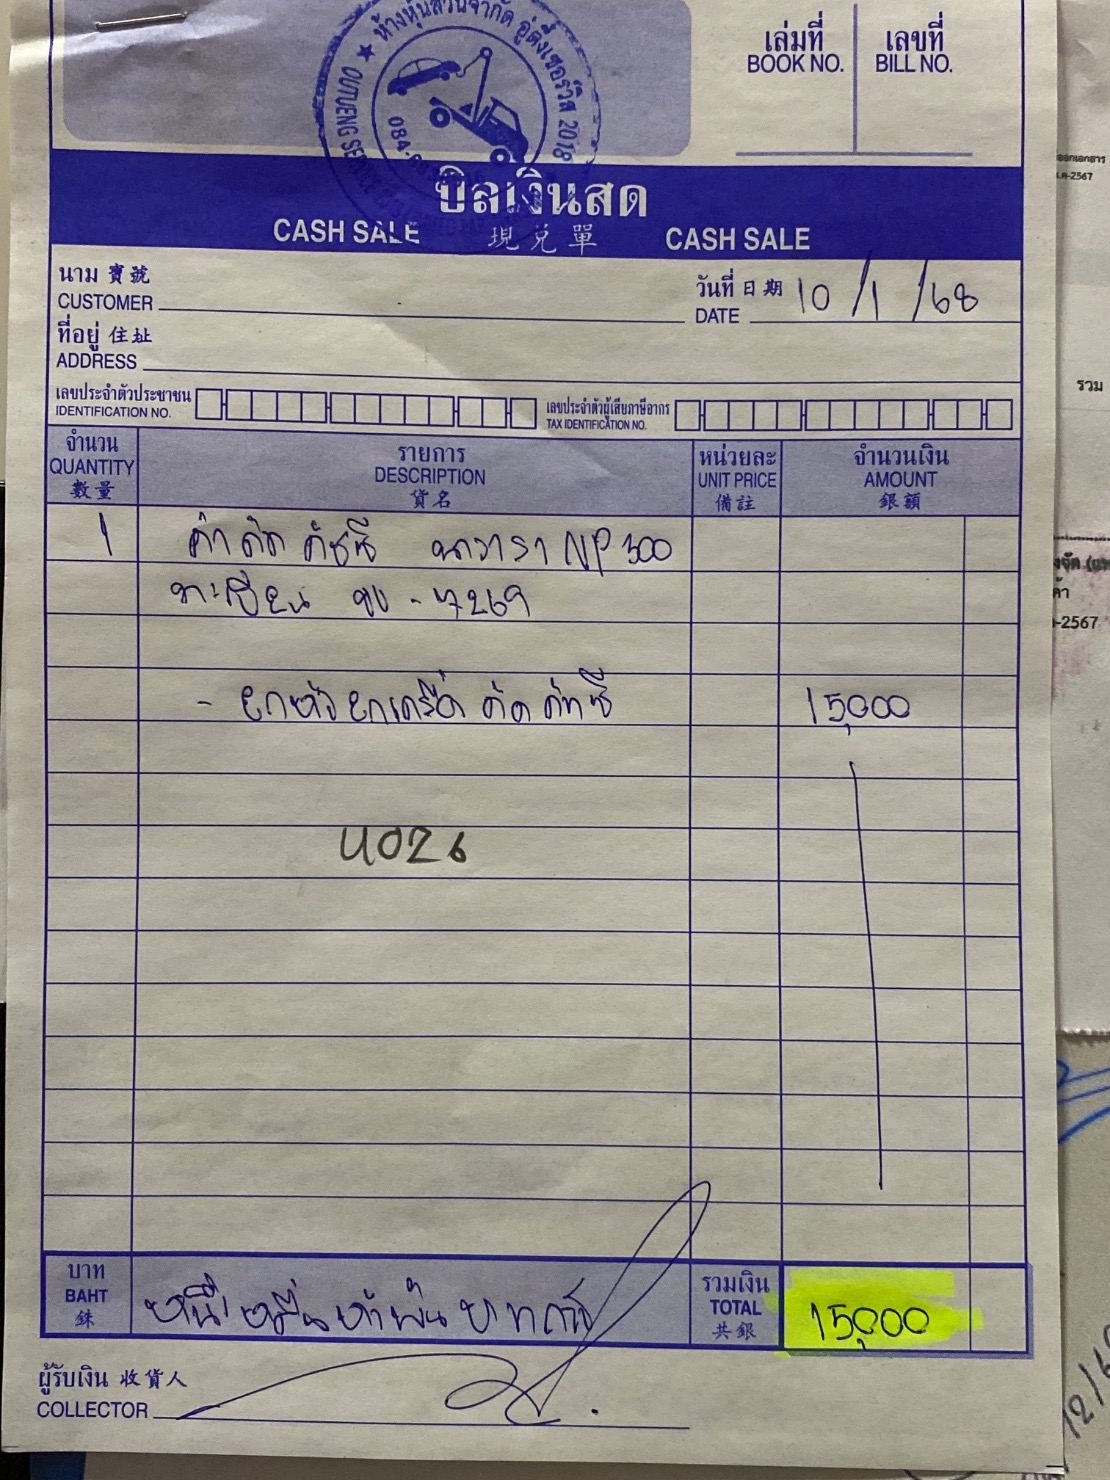 ห้างหุ้นส่วนจำกัด อู่ตึ๋งเซอร์วิส 2018
OUTUENG
084-
เล่มที่ เลขที่
BOOK NO. BILL NO.
บิลเงินสด
CASH SALE 現兌單 CASH SALE
นาม 寶號 วันที่ 日期 10/1/68
CUSTOMER DATE
ที่อยู่ 住址
ADDRESS
เลขประจำตัวประชาชน เลขประจำตัวผู้เสียภาษีอากร
IDENTIFICATION NO. TAX IDENTIFICATION NO.
จำนวน รายการ หน่วยละ จำนวนเงิน
QUANTITY DESCRIPTION UNIT PRICE AMOUNT
數量 貨名 備註 銀額
1 ค่าดัด คัชซี นาวารา NP 300
ทะเบียน ขบ - 7269
- ยกหัวยกเครื่อง ดัด คัทซี 15,000
U026
บาท หนึ่งหมื่นห้าพันบาทถ้วน รวมเงิน 15,000
BAHT TOTAL
銖 共銀
ผู้รับเงิน 收貨人
COLLECTOR
ออกเอกสาร
-2567
รวม
-2567